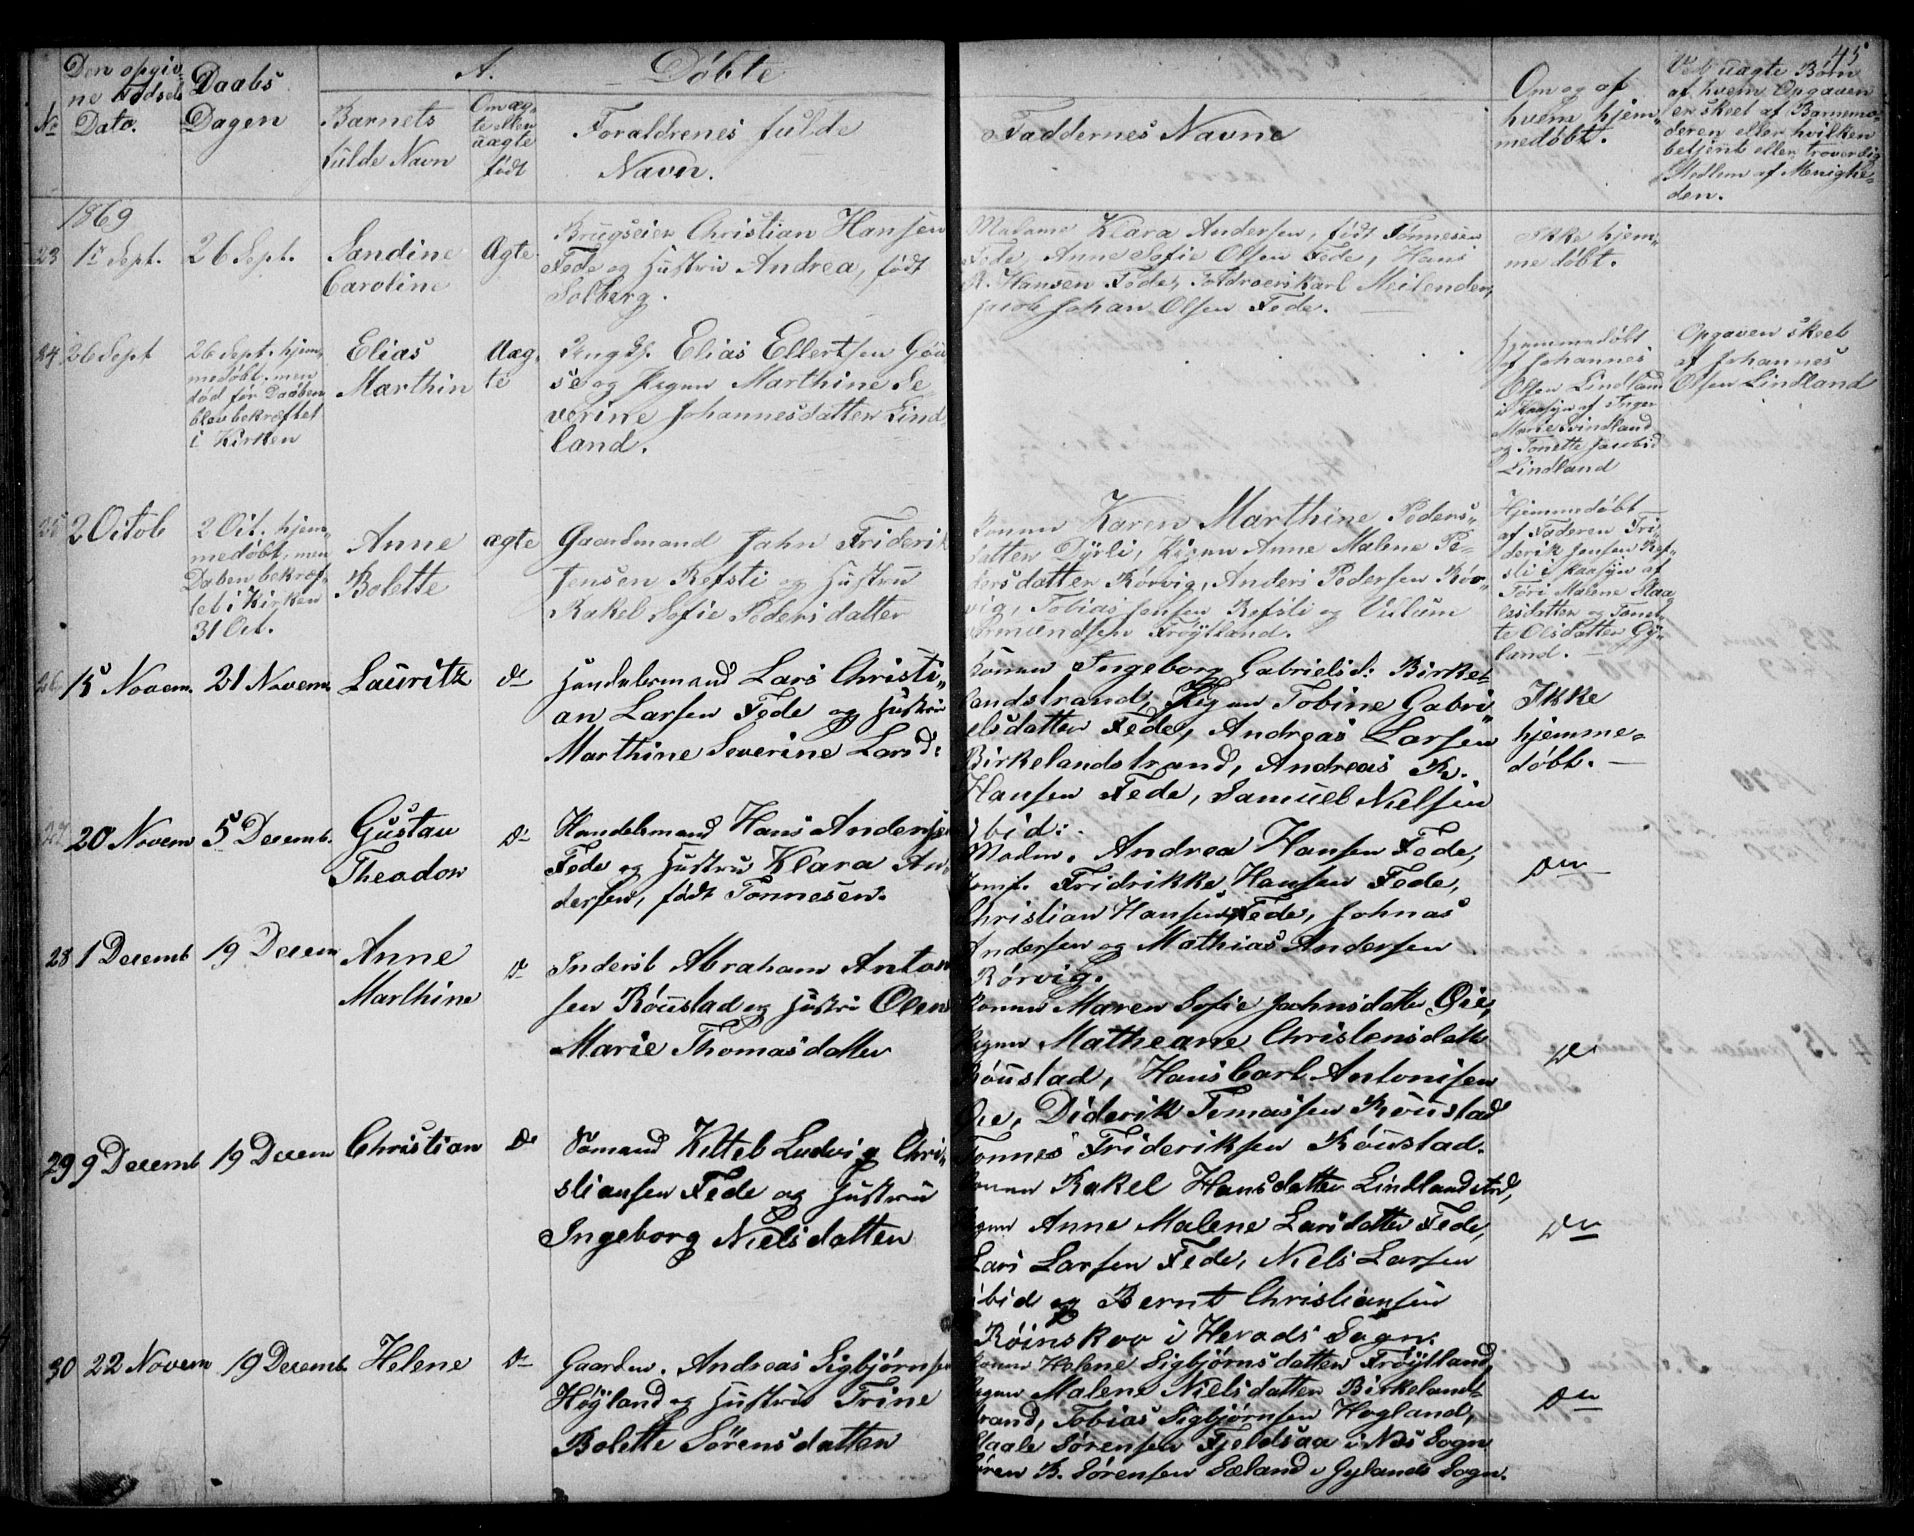 45
A. Döbte
No
Den opgiv-
ne Födsels
Dato.
Daabs
Dagen
Barnets
fulde Navn
Om æg-
te eller
uægte
født
Foraldrenes fulde
Navn.
Faddernes Navne
Om og af
hvem hjem-
medøbt.
Ved uagte Børn
af hvem Opgaven
er skeet af Barnemo-
deren eller hvilken
betjent eller troverdig
Medlem af Menighe-
den.
1869
23
12 Sept.
26 Sept.
Sandine
Carotine
Ægte
Brugseier Christian Hansen
Fede og Hustru Andrea, født
Solberg.
Madame Klara Andersen, født Tønnesen
Fede, Anne Sofie Olsen Fede, Hans
R. Hansen Fede, Toldroerskarl Meilender,
Jacob Johan Olsen Fede.
Ikke hjem-
medøbt.
24
26 Sept
26 Sept. hjem-
medøbt, men
død før Daaben
blev bekræftet
i Kirken
Elias
Marthin
Uæg-
te
Ungk. Elias Ellertsen Göu
se og Pigen Marthine Se
verine Johannesdatter Lind
land.
Hjemmedøbt
af Johannes
Olsen Lindland
i Paasyn af Inger
Marie Svindland
og Tonette Jacobsd
Lindland
Opgaven skeet
af Johannes
Olsen Lindland
25
2 Octob
2 Oct. hjem-
medøbt, men
Daben bekræf-
tet i Kirken
31 Oct.
Anne
Bolette
ægte
Gaardmand John Friderik
Jensen Refsti og Hustru
Rakel Sofie Pedersdatter
Konen Karen Marthine Peders-
datter Dyrli, Pigen Anne Malene Pe-
dersdatter Rørvig, Anders Pedersen Rør-
vig, Tobias Jensen Refsti og Villum
Aamundsen Frøytland.
Hjemmedøbt
af Faderen Fri-
derik Jensen Ref-
sti i paasyn af
Töri Malene Aaa
lesdatter og Tonet-
te Olsdatter Gy-
land.
26
15 Novem.
21 Novem.
Lauritz
do
Handelsmand Lars Christi-
an Larsen Fede og Hustru
Marthine Severine Larsd:
Konen Ingeborg Gabrielsd: Birke-
landstrand, Pigen Tobine Gabri-
elsdatter Fede, Andreas Larsen
Birkelandstrand, Andreas R.
Hansen Fede, Samuel Nielsen
ibid:
Ikke
hjemme-
døbt.
27
20 Novem
5 Decemb.
Gustav
Theodor
do
Handelsmand Hans Andersen
Fede og Hustru Klara An-
dersen, født Tönnesen.
Madm. Andrea Hansen Fede,
Jomf. Fridrikke Hansen Fede,
Christian Hansen Fede, Johnas
Andersen og Mathias Andersen
Rørvig.
do
28
1 Decemb
19 Decem
Anne
Marthine
do
Inderst Abraham Anton
sen Röustad og Hustru Olene
Marie Thomasdatter
Konen Maren Sofie Jachnsdatter Øie,
Pigen Matheane Christensdatter
Röustad, Hans Carl Antonisen
Øie, Diderik Tomassen Röustad
Tönnes Frideriksen Röustad.
do
29
9 Decemb
19 Decem
Christian
do
Sömand Kettel Ludvig Chri-
stiansen Fede og Hustru
Ingeborg Nielsdatter
Konen Rakel Hansdatter Lindlandstrd,
Pigen Anne Malene Larsdatter Fede,
Lars Larsen Fede, Niels Larsen
ibid og Bernt Christiansen
Röinskov i Herads Sogn.
do
30
22 Novem
19 Decemb.
Helene
do
Gaardm. Andreas Sigbjørnsen
Høyland og Hustru Trine
Bolette Sörensdatter
Konen Helene Sigbjørnsdatter Frøytland,
Pigen Malene Nielsdatter Birkeland-
strand, Tobias Sigbjørnsen Hogland,
Staale Sørensen Fjeldsaa i Nes Sogn
Søren B. Sørensen Sæland i Gylands Sogn.
do